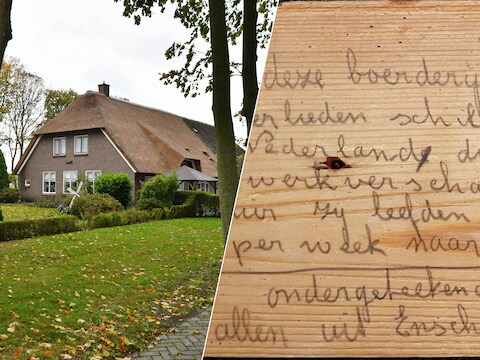 deze boerderij
er lieden sch
Nederland, d
werkverscha
uur zy leefden
per week naar
ondergeteekend
allen uit Ensch